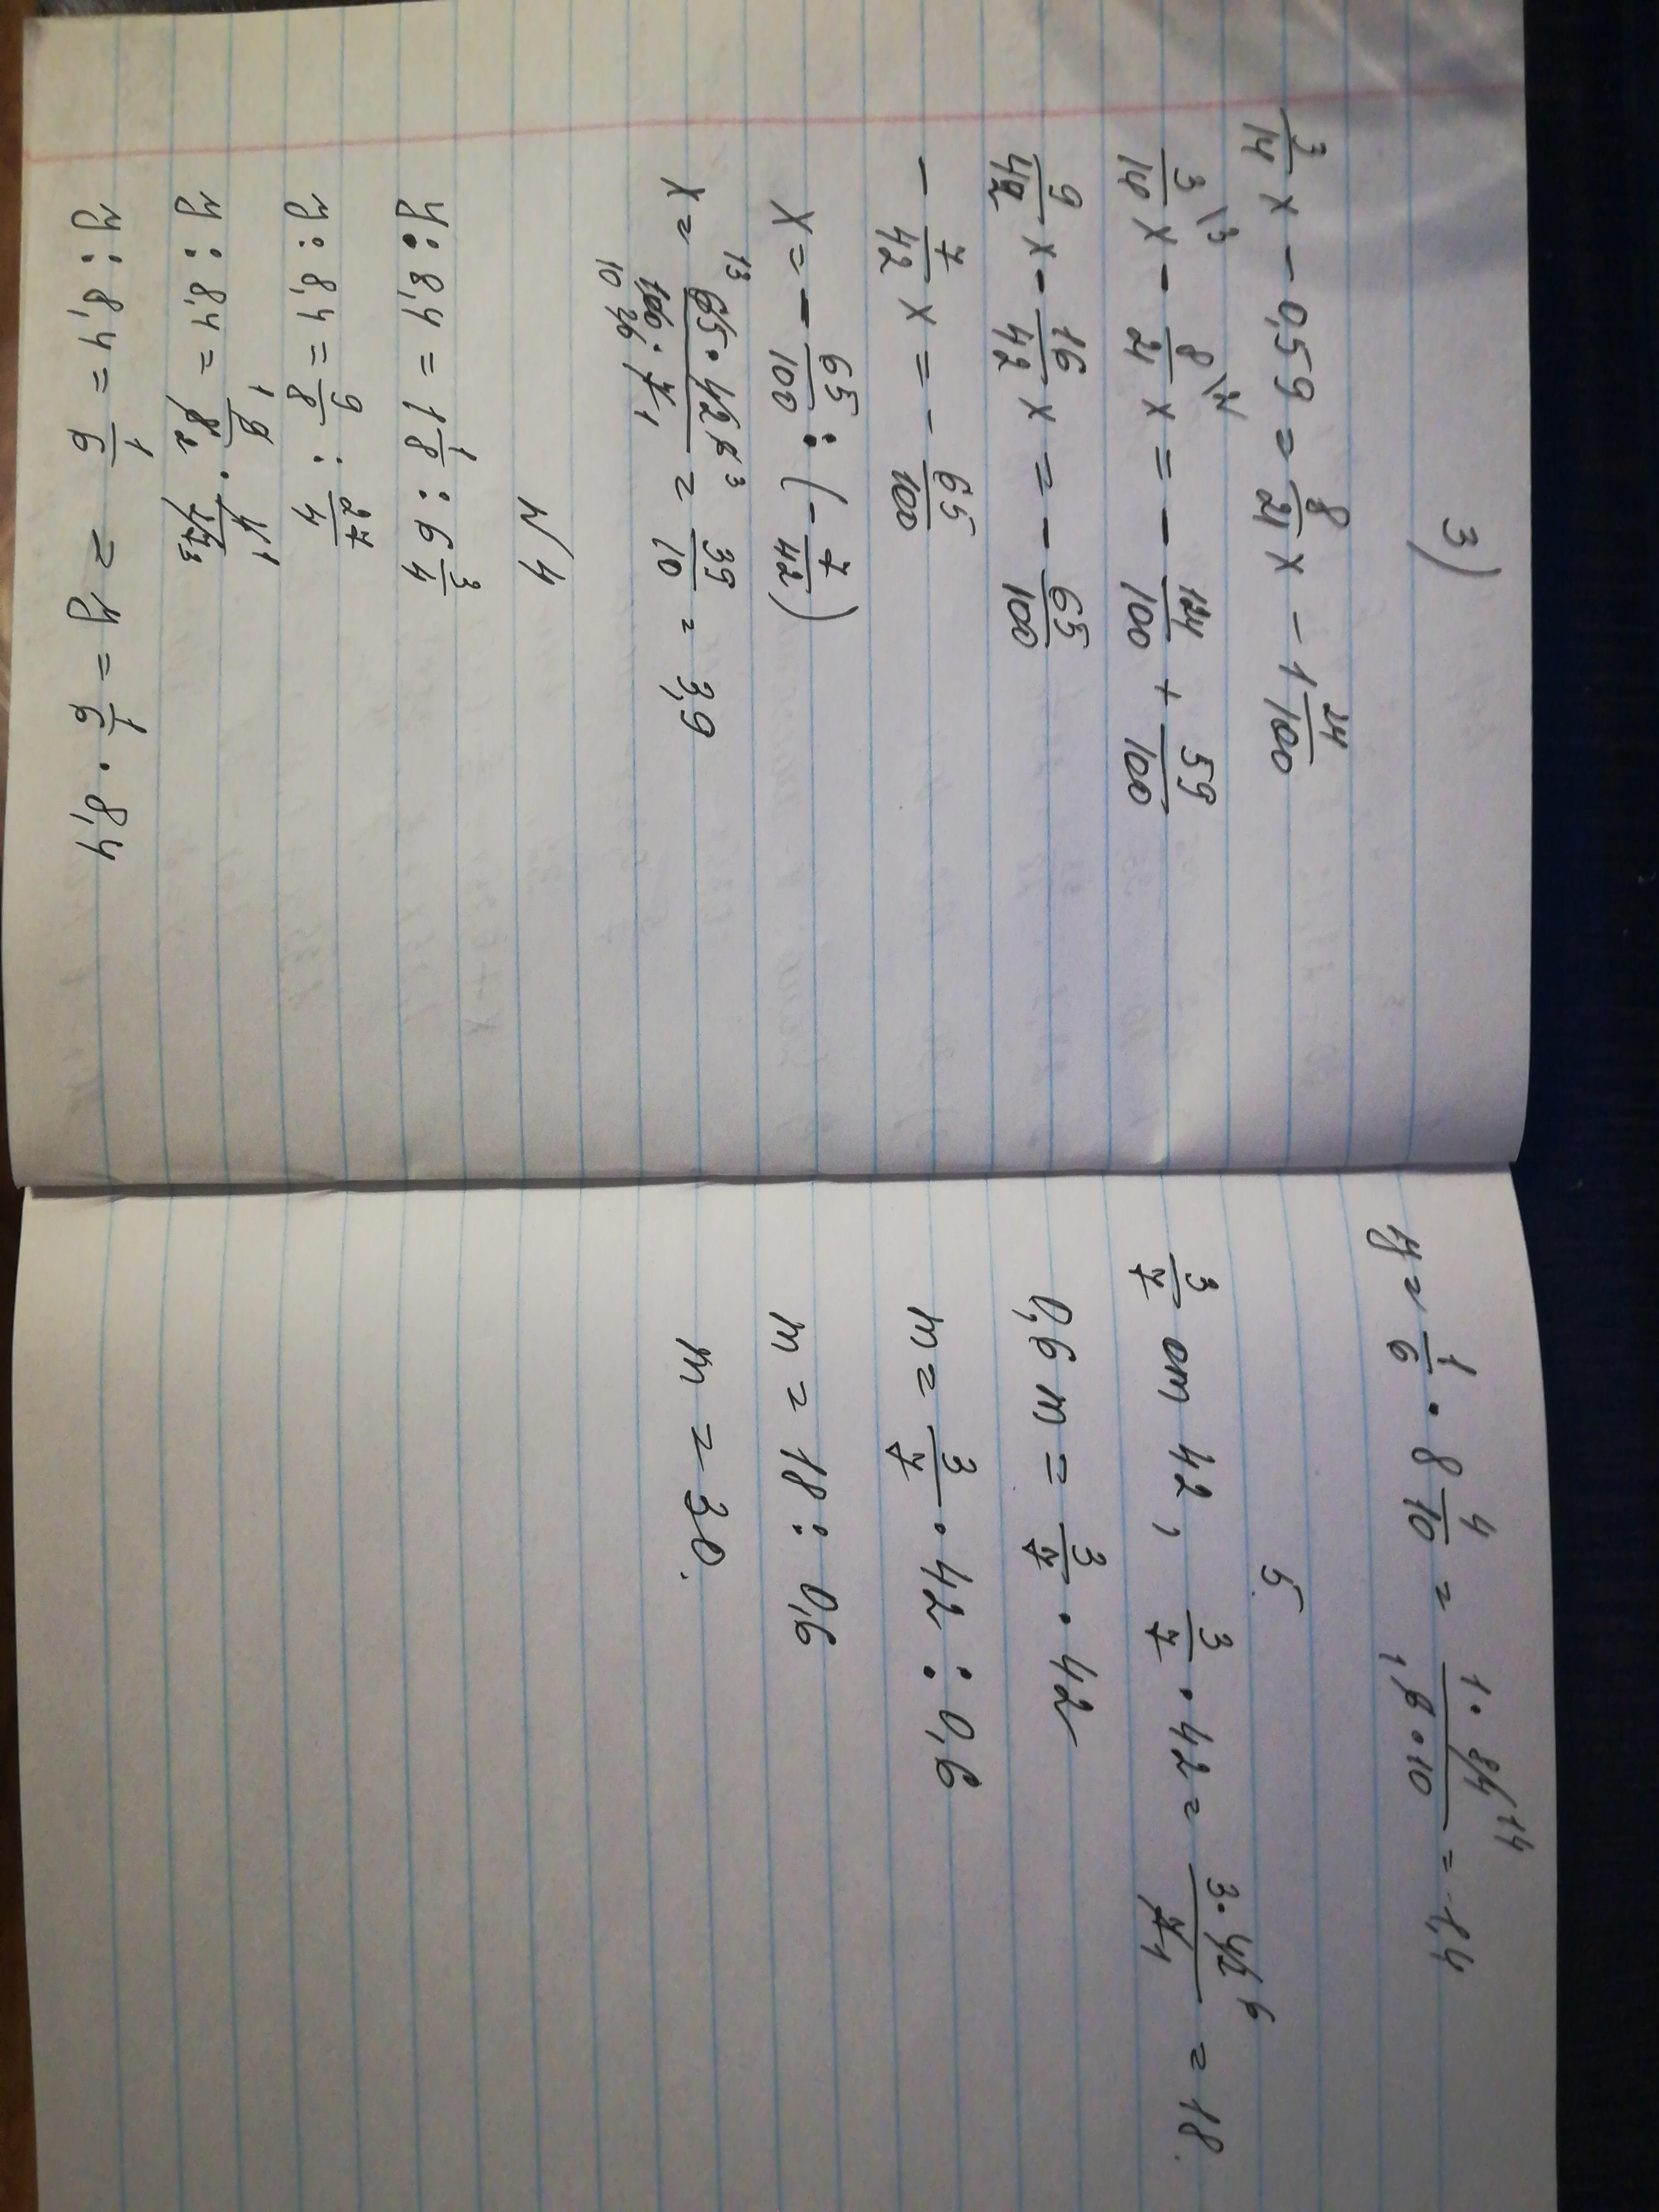 3)
3/14 x - 0,59 = 8/21 x - 1 24/100
3\3/14 x - 8\2/21 x = - 124/100 + 59/100
9/42 x - 16/42 x = - 65/100
- 7/42 x = - 65/100
x = - 65/100 : (- 7/42)
x = 65·42/100·7 = 39/10 = 3,9
N4
y : 8,4 = 1 1/8 : 6 3/4
y : 8,4 = 9/8 : 27/4
y : 8,4 = 9/8 · 4/27
y : 8,4 = 1/6 = y = 1/6 · 8,4
y = 1/6 · 8 4/10 = 1·84/6·10 = 1,4
5.
3/7 от 42, 3/7 · 42 = 3·42/7 = 18.
0,6 m = 3/7 · 42
m = 3/7 · 42 : 0,6
m = 18 : 0,6
m = 30.